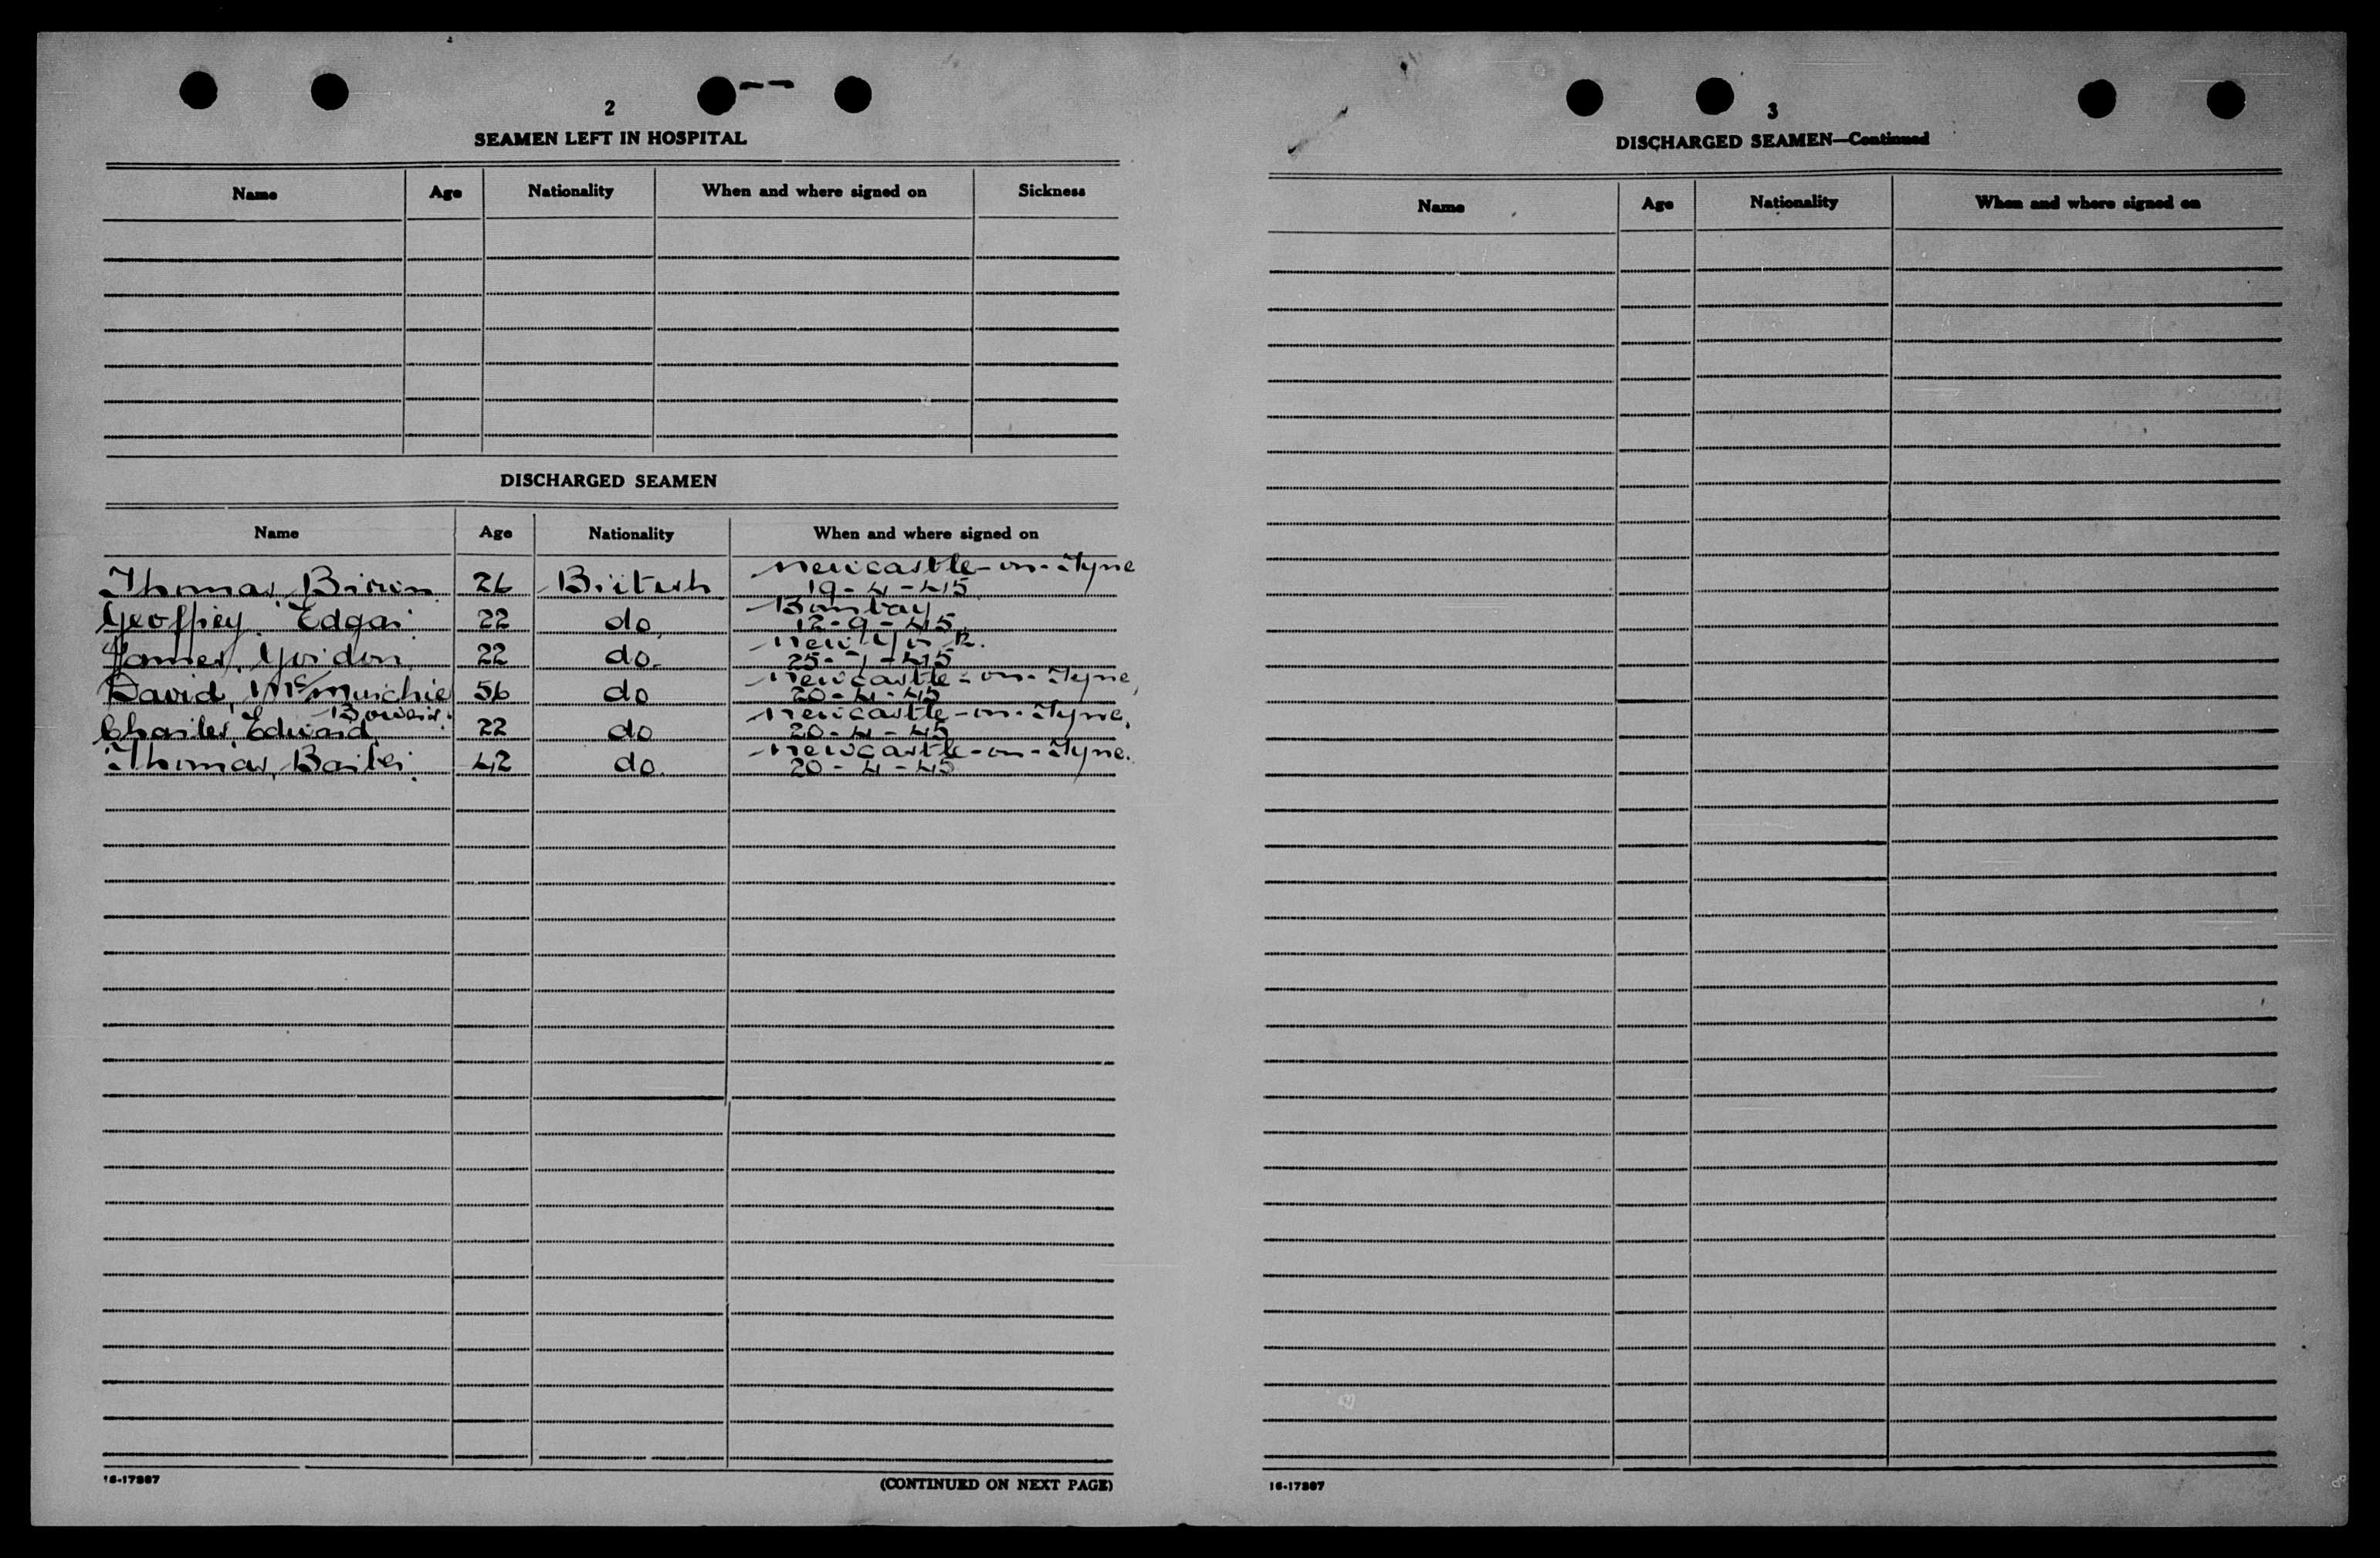 2
SEAMEN LEFT IN HOSPITAL
Name Age Nationality When and where signed on Sickness
DISCHARGED SEAMEN
Name Age Nationality When and where signed on
Newcastle-on-Tyne
Thomas, 26 British 19-4-45
Bombay
Geoffrey Edgar 22 do 12-9-45
New York.
James, Gordon 22 do. 25-7-45
Newcastle-on-Tyne,
David, McMurchie 56 do 20-4-45
Bowers. Newcastle-on-Tyne,
Charles, Edward 22 do 20-4-45
Newcastle-on-Tyne.
Thomas, 42 do. 20-4-45
16-17887
(CONTINUED ON NEXT PAGE)
3
DISCHARGED SEAMEN—Continued
Name Age Nationality When and where signed on
16-17887